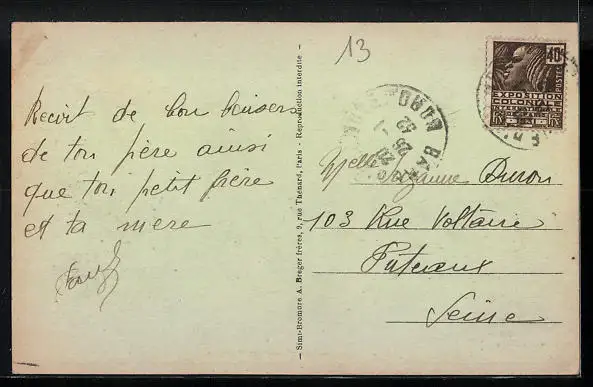 13
40c
POSTES
EXPOSITION
COLONIALE
Reçoit de bon baisers
de ton père ainsi
que ton petit frère
et ta mere
Melle Suzanne Duron
103 Rue Voltaire
Puteaux
Seine
Simi-Bromure A. Breger frères, 9, rue Thénard, Paris - Reproduction interdite -